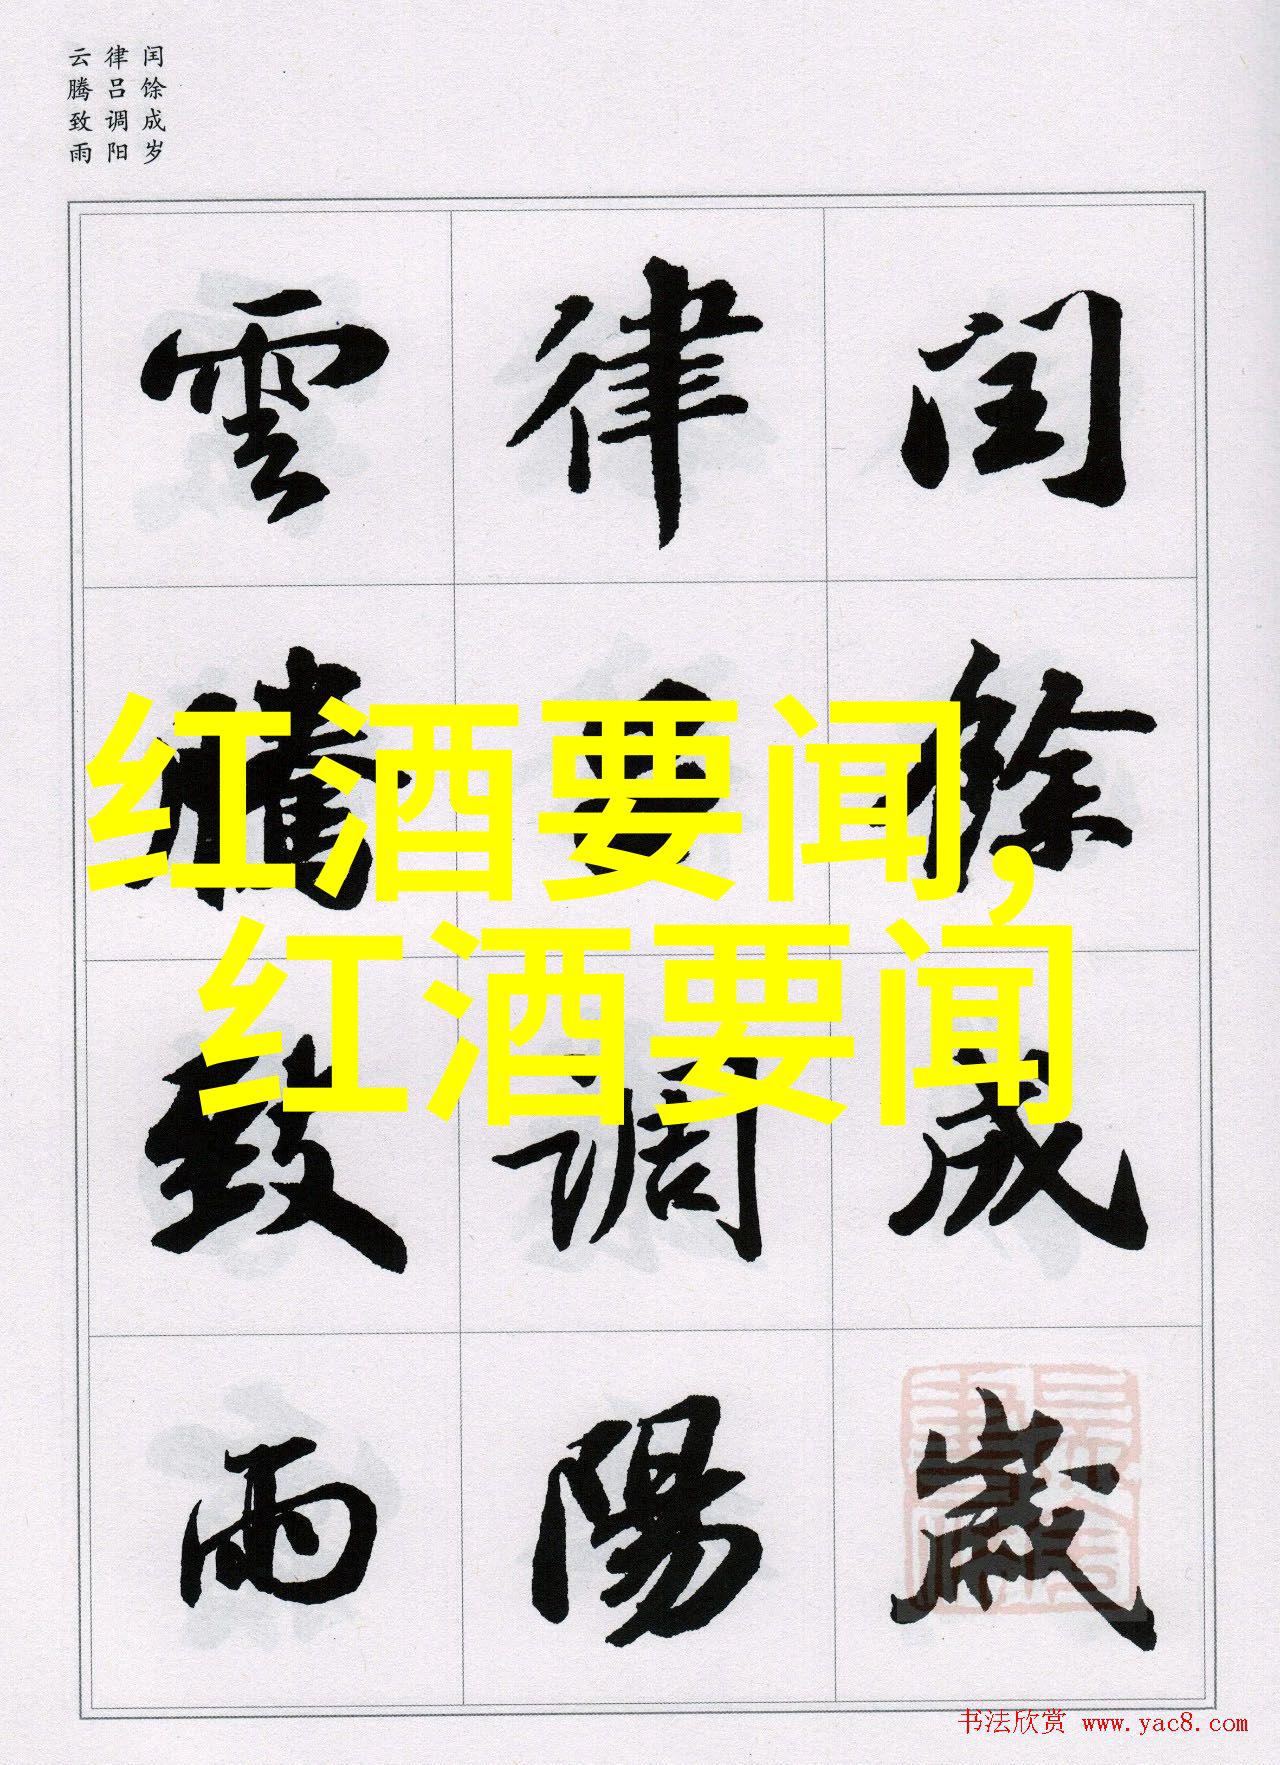 闰馀成岁
律吕调阳
云腾致雨
閏餘成歲
律吕調陽
雲騰致雨
红酒要闻,
红酒要闻
书法欣赏 www.yac8.com